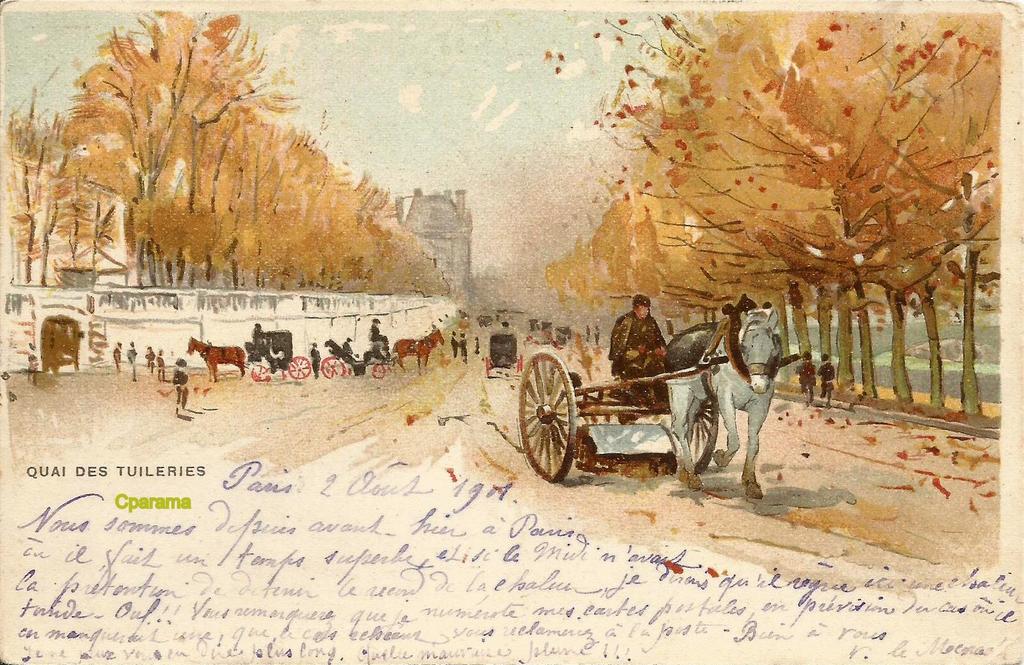 QUAI DES TUILERIES
Cparama
Paris 2 Août 1901.
Nous sommes depuis avant-hier à Paris
où il fait un temps superbe, et si le Midi n'avait
la prétention de détenir le record de la chaleur, je dirais qu'il règne ici une chaleur
torride. Ouf!! Vous remarquerez que je numérote mes cartes postales, en prévision du cas où il
en manquerait une, que le cas échéant vous réclamerez à la poste - Bien à vous
Je ne puis vous en dire plus long. Quelle mauvaise plume!!! V. le